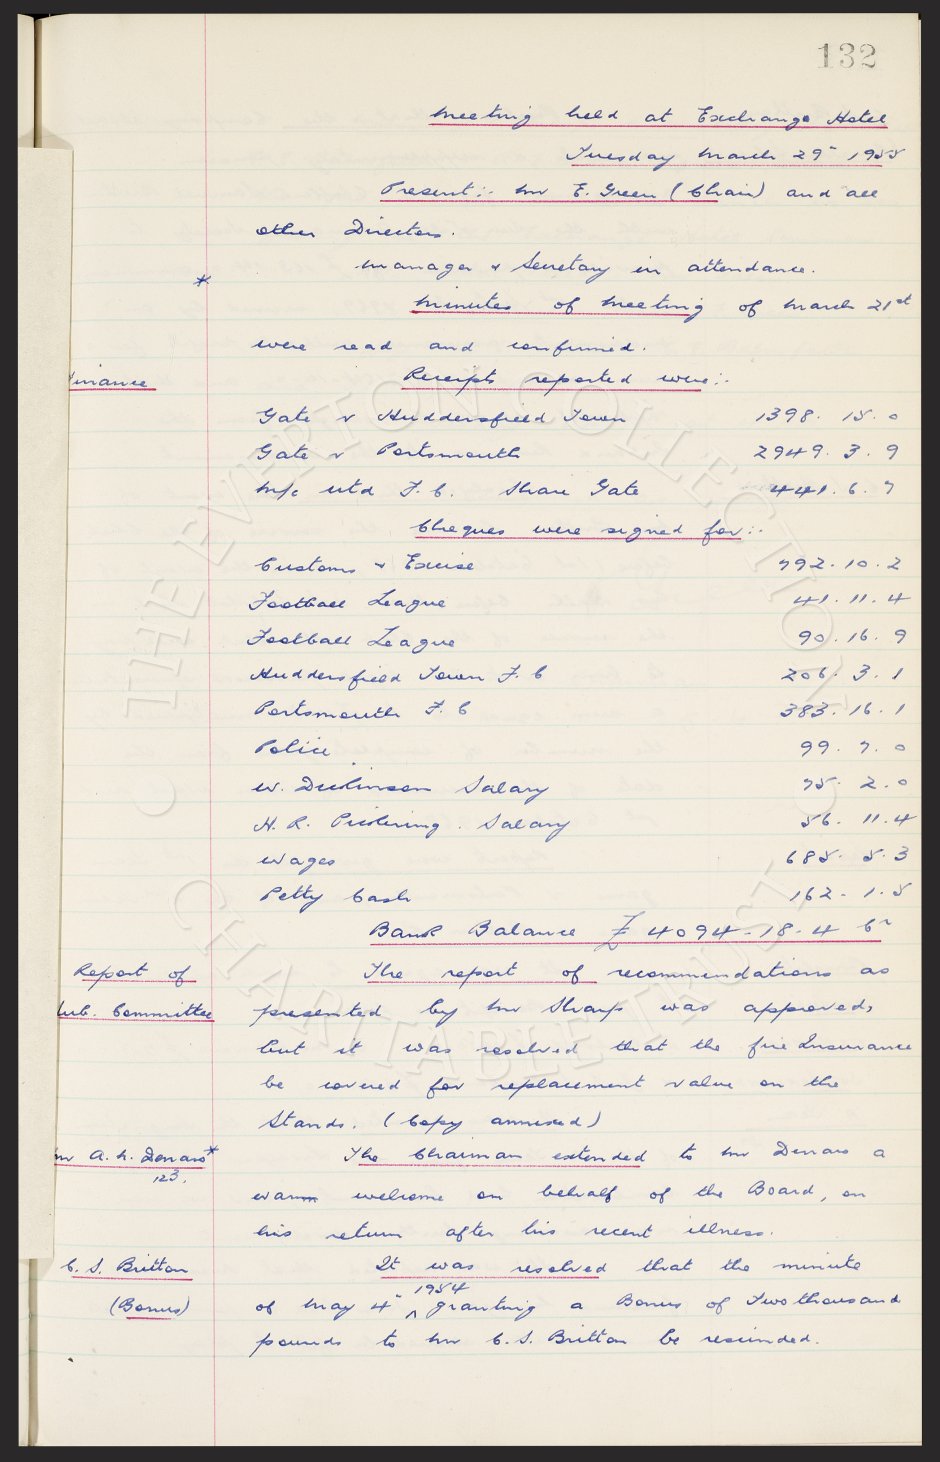 132
Meeting held at Exchange Hotel
Tuesday March 29" 1955
Present :- Mr E. Green (Chair) and all
other Directors.
Manager & Secretary in attendance.
*
Minutes of Meeting of March 21st
were read and confirmed.
Finance
Receipts reported were :-
Gate v Huddersfield Town 1398. 15. 0
Gate v Portsmouth 2949. 3. 9
M/c Utd F.C. Share Gate 441. 6. 7
Cheques were signed for :-
Customs & Excise 792. 10. 2
Football League 41. 11. 4
Football League 90. 16. 9
Huddersfield Town F.C 206. 3. 1
Portsmouth F.C 383. 16. 1
Police 99. 7. 0
W. Dickinson Salary 75. 2. 0
H. R. Pickering. Salary 56. 11. 4
Wages 685. 5. 3
Petty Cash 162. 1. 5
Bank Balance £4094-18-4 Cr
Report of
Sub. Committee
The report of recommendations as
presented by Mr Sharp was approved,
but it was resolved that the fire Insurance
be covered for replacement value on the
Stands. (Copy annexed)
Mr A. L. Denaro *
123.
The Chairman extended to Mr Denaro a
warm welcome on behalf of the Board, on
his return after his recent illness.
C. S. Britton
(Bonus)
It was resolved that the minute
of May 4" 1954 granting a Bonus of Two thousand
pounds to Mr C. S. Britton be rescinded.
© THE EVERTON COLLECTION
CHARITABLE TRUST